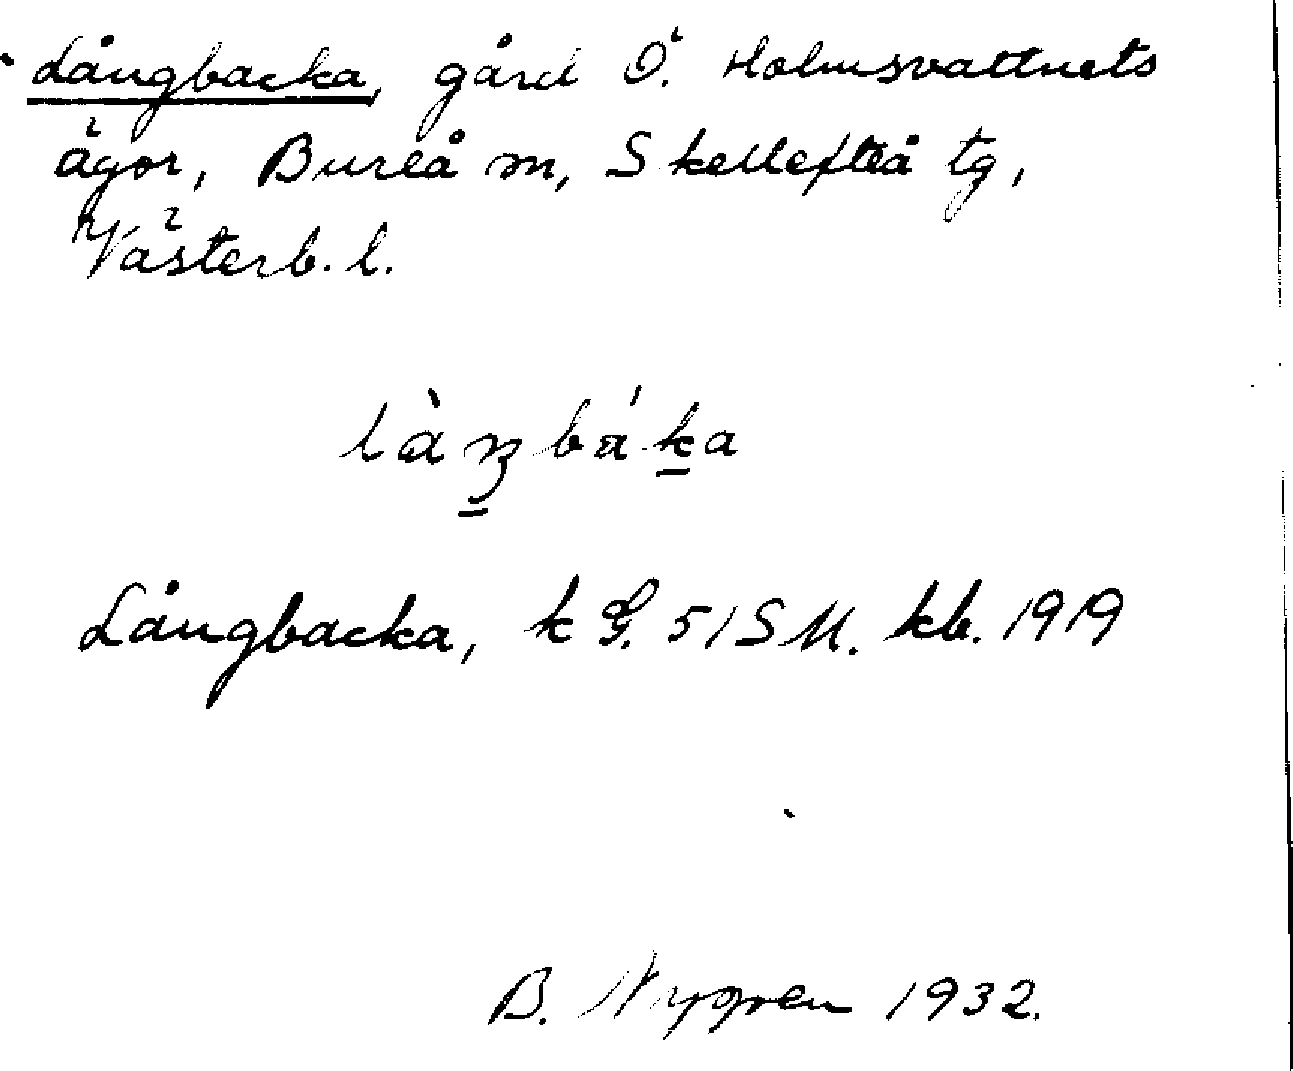 Långbacka, gård Ö. Holmsvattnets
ägor, Bureå m, Skellefteå tg,
Västerb. l.
làŋbá·ka
Långbacka, k G. 51 SM. kb. 1919
B. Nygren 1932.